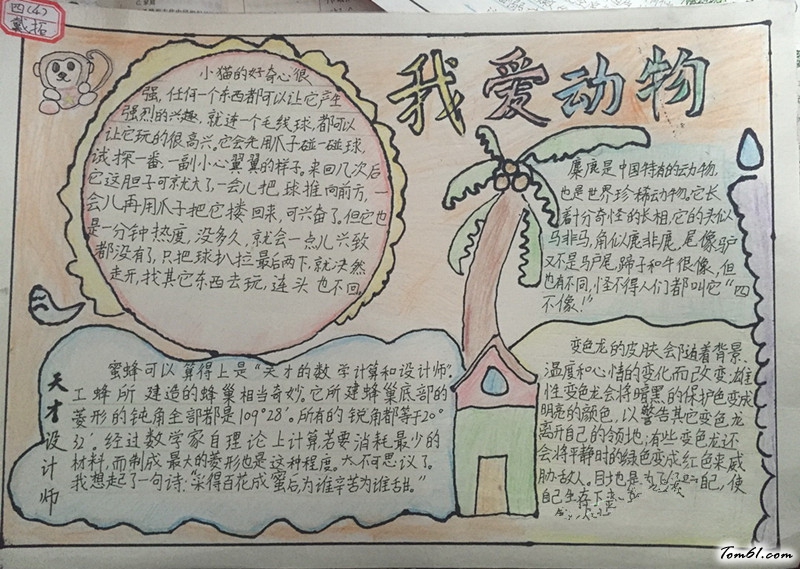 四(4)
戴招
我爱动物
小猫的好奇心很
强，任何一个东西都可以让它产生
强烈的兴趣，就连一个毛线球，都可以
让它玩的很高兴，它会先用爪子碰一碰球
试探一番，一副小心翼翼的样子。来回几次后
它这胆子可就大了，一会儿把球推向前方，一
会儿再用爪子把它搂回来，可兴奋了。但它也
是一分钟热度，没多久，就会一点儿兴致
都没有了，只把球扒拉最后两下，就决然
走开，找其它东西去玩，连头也不回。
麋鹿是中国特有的动物，
也是世界珍稀动物。它长
着十分奇怪的长相，它的头似
马非马，角似鹿非鹿，尾像驴
又不是马尾，蹄子和牛很像，但
也有不同，怪不得人们都叫它“四
不像！”
天才设计师
蜜蜂可以算得上是“天才的数学计算和设计师”。
工蜂所建造的蜂巢相当奇妙。它所建蜂巢底部的
菱形的钝角全部都是109°28′。所有的锐角都等于20°
32′，经过数学家自理论上计算若要消耗最少的
材料，而制成最大的菱形也是这种程度。太不可思议了。
我想起了一句诗：“采得百花成蜜后为谁辛苦为谁甜。”
变色龙的皮肤会随着背景、
温度和心情的变化而改变；雄
性变色龙会将暗黑的保护色变成
明亮的颜色，以警告其它变色龙
离开自己的领地；有些变色龙还
会将平静时的绿色变成红色来威
胁敌人。目地也是为了保己，使
自己生存下来
Tom61.com